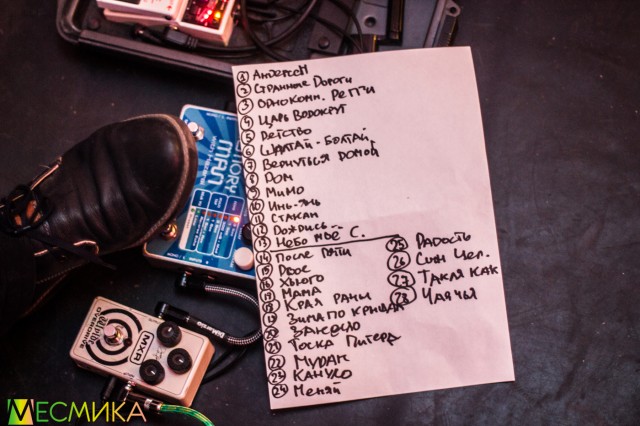 1 Андерсен
2 Странные Дороги
3 Однокомн. Реппи
4 Царь Водокруг
5 Детство
6 Шалтай-Болтай
7 Вернуться домой
8 Дом
9 Мимо
10 Инь-янь
11 Стакан
12 Дождись
13 Небо моё С.
14 После Пяти
15 Двое
16 Хьюго
17 Мама
18 Края раны
19 Зима по кривой
20
21 Тоска Питера
22 Мудак
23 Кануло
24 Меняй
25 Радость
26 Сын Чел.
27 Такая как
28 Чайчья
STORY
MAN
MXR
OVERDRIVE
DiMarzio
МЕСМИКА